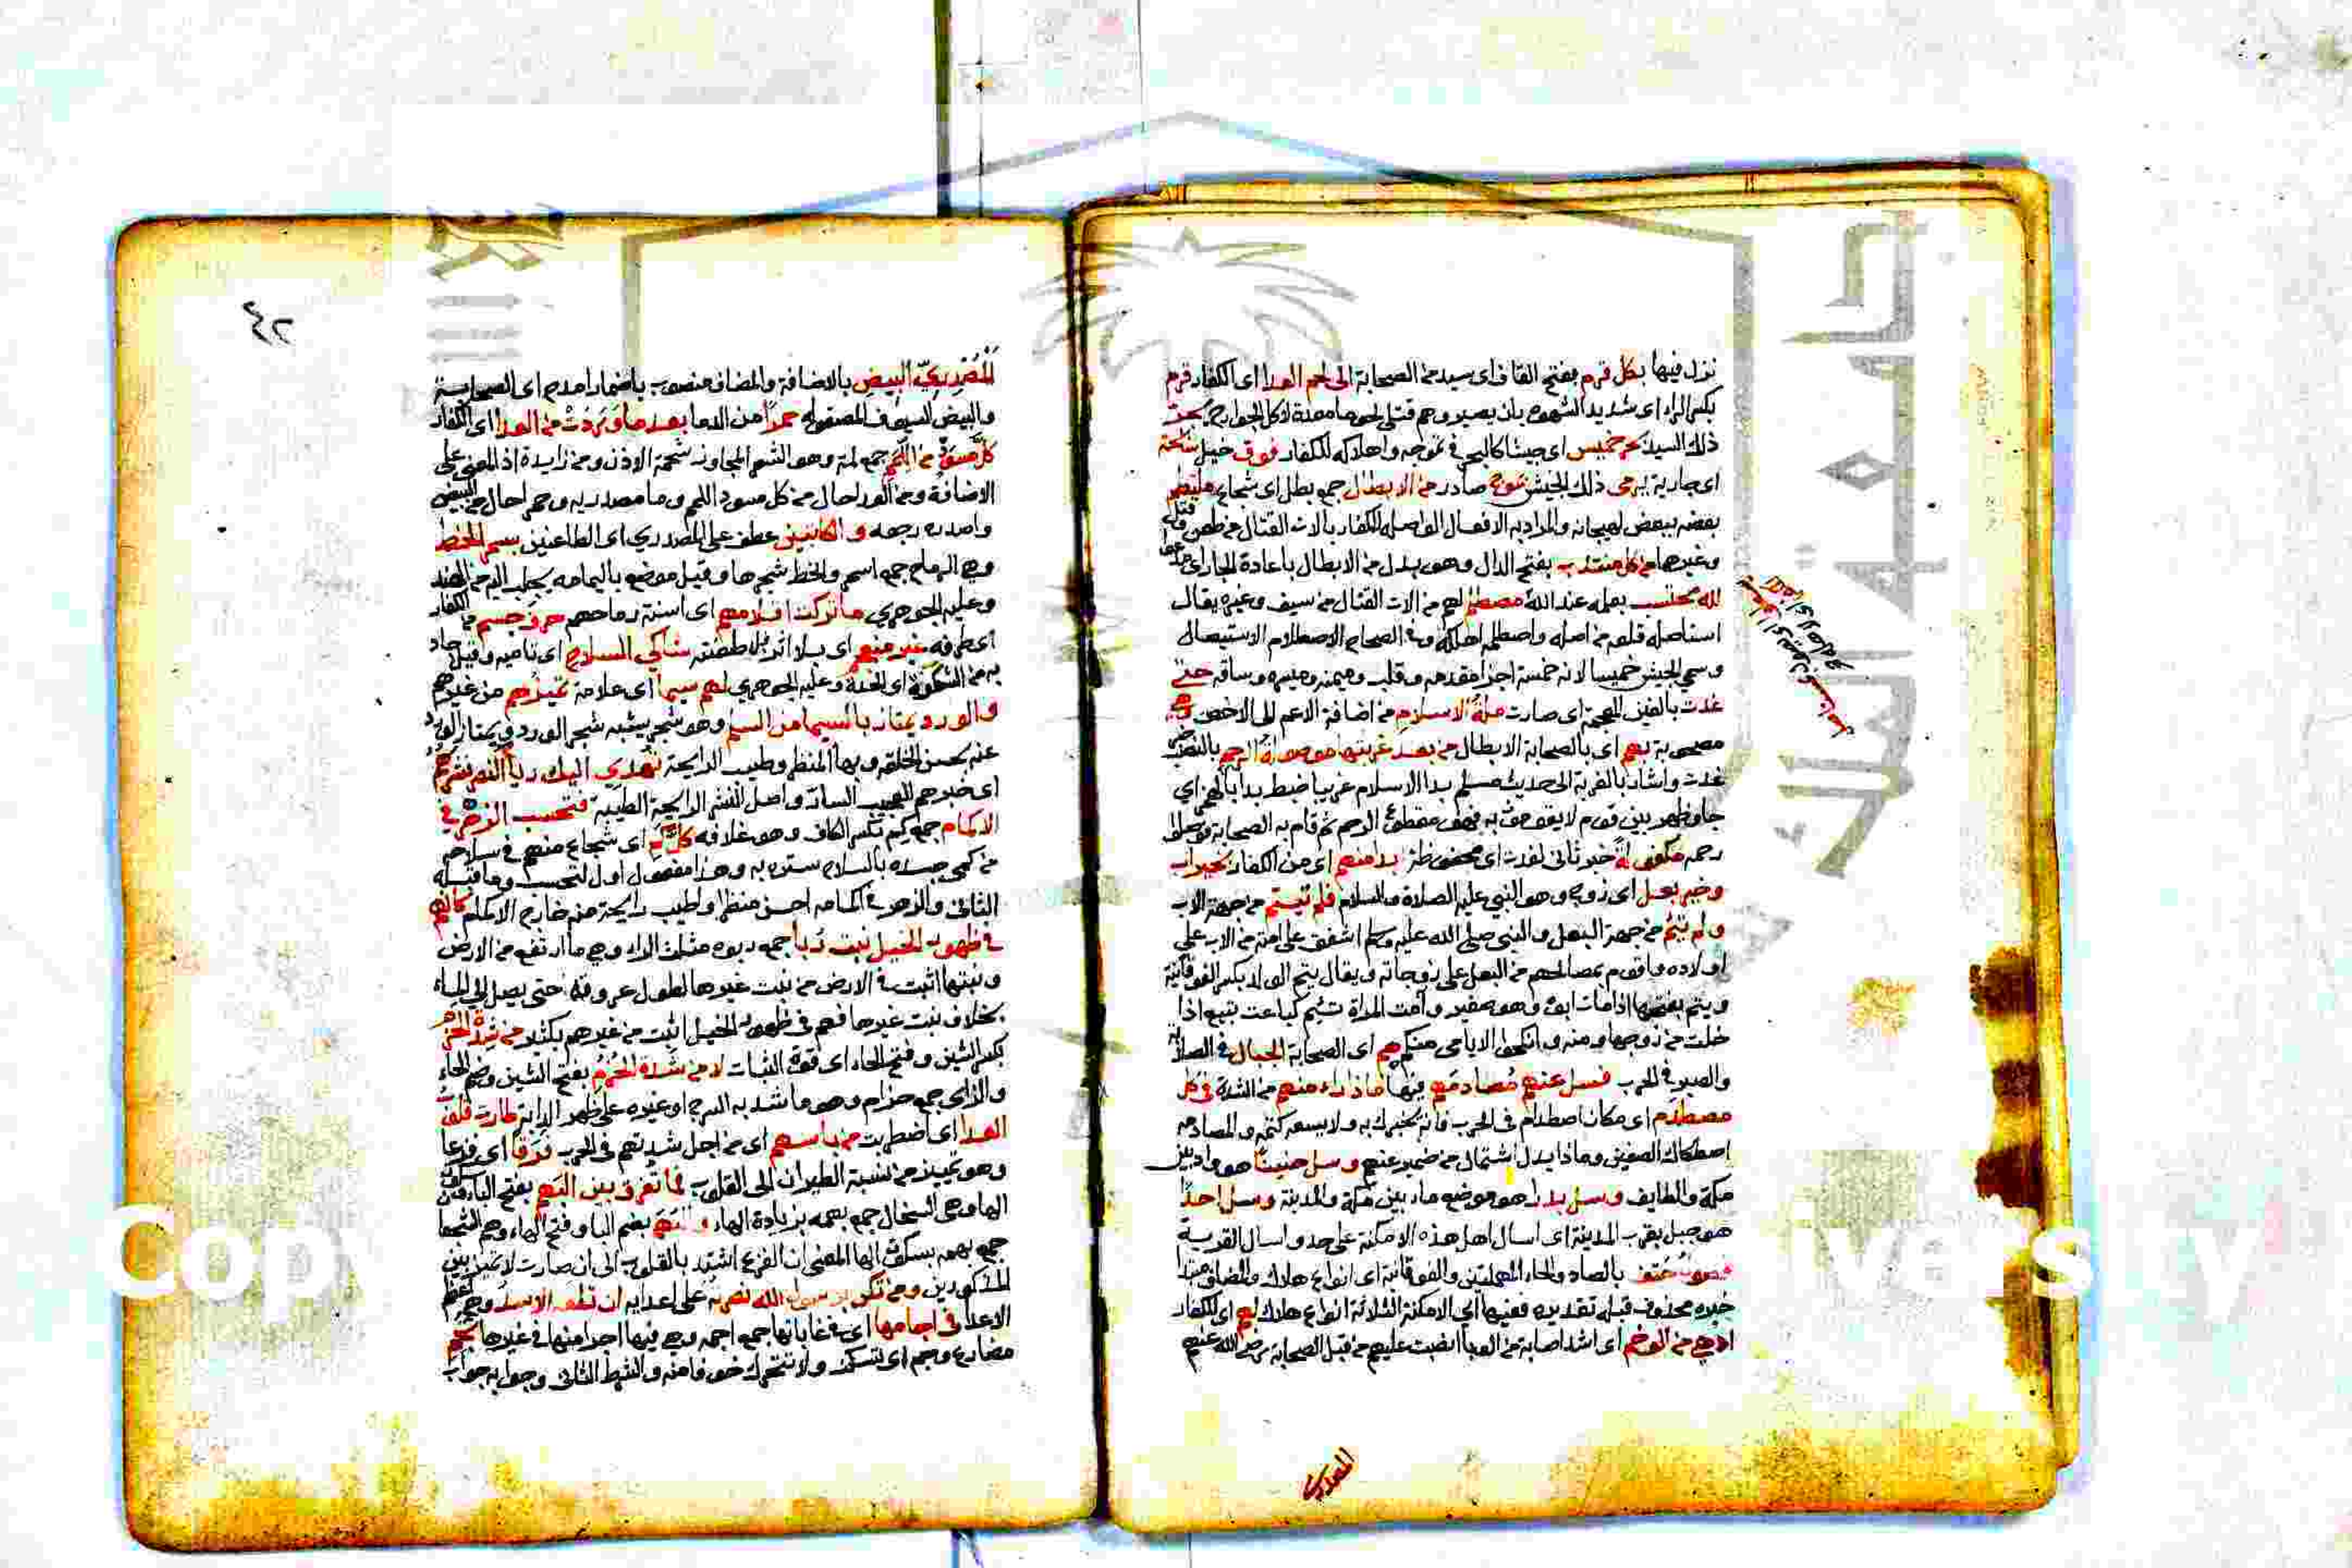 نزل فيها بكل قرم بفتح القاف اى سيد من الصحابة الى لحم العدا اى الكفار قرم
بكسر الراء اى شديد الشهوة بان يصير وهم قتلى لحوما معدة لاكل الجوارح يجر
ذلك السيد بحر خميس اى جيشا كالبحر فى تموجه واهلاكه للكفار فوق خيل سابحة
اى جارية يرمى ذلك الجيش بموج صادر من الابطال جمع بطل اى شجاع ملتطم
بعضه ببعض لهيجانه والمراد به الافعال الواصلة للكفار بالات القتال من طعن وقتل
وغيرها من كل منتدب بفتح الدال وهو بدل من الابطال باعادة الجار اى
لله محتسب بعمله عند الله مصطلم لهم من الات القتال من سيف وغيره يقال
استاصله قلعه من اصله واصطلمه اهلكه وفى الصحاح الاصطلام الاستيصال
وسمى الجيش خميسا لانه خمسة اجزا مقدمه وقلب وميمنه وميسره وساقه حتى
غدت بالغين المعجمة اى صارت ملة الاسلام من اضافة الاعم الى الاخص وهى
مصحوبة بهم اى بالصحابة الابطال من بعد غربتها موصولة الرحم بالنصب خبر
غدت واشار بالغربة الى حديث مسلم بدا الاسلام غريبا ضبط بدا بالهمز اى
جا وظهر بين قوم لا يقومون به فهو مقطوع الرحم ثم قام به الصحابة فوصلوا
رحمه مكفولة خبر ثانى لغدت اى محفوظة ابدا منهم اى من الكفار بخير اب
وخير بعل اى زوج وهو النبى عليه الصلاة والسلام فلم تيتم من جهة الاب
ولم تئم من جهة البعل والنبى صلى الله عليه وسلم اشفق على امته من الاب على
اولاده واقوم بمصالحهم من البعل على زوجاته ويقال يتم الولد بكسر الفوقانية
ويتم بفتحها اذا مات ابوه وهو صغير وآمت المراة تئيم كباعت تبيع اذا
خلت من زوجها ومنه وانكحوا الايامى منكم هم اى الصحابة الجبال فى الصلابة
والصبر فى الحرب فسل عنهم مصادمهم فيها ماذا راء منهم من الشدة فى كل
مصطدم اى مكان اصطدام فى الحرب فانه يخبرك به ولا يسعه كتمه والمصادمه
اصطكاك الصفين وماذا بدل اشتمال من ضمير عنهم وسل حنينا هو واد بين
مكة والطايف وسل بدرا هو موضع ماء بين مكة والمدينة وسل احدا
هو جبل بقرب المدينة اى اسال اهل هذه الامكنة على حد واسال القرية
فصول حتف بالصاد والحاء المهملتين والفوقانية اى انواع هلاك والمضاف مبتدا
خبره محذوف قبله تقديره ففيها اى الامكنة الثلاثة انواع هلاك لهم اى للكفار
ادهى من الوخم اى اشد اصابة من الوبا انصبت عليهم من قبل الصحابة رضى الله عنهم
المصدرى
٤٢
المصدرى البيض بالاضافة والمضاف منصوب باضمار امدح اى الصحابة
والبيض السيوف المصقولة حمرا من الدما بعد ما وردت من العدا اى الكفار
كل مسود من اللمم جمع لمة وهو الشعر المجاوز شحمة الاذن ومن زايدة اذ المعنى على
الاضافة ومن العدا حال من كل مسود اللمم وما مصدريه وحمر احال من البيض
واصدره رجعه والكاتبين عطف على المصدرى اى الطاعنين بسمر الخط
وهى الرماح جمع اسمر والخط شجرها وقيل موضع باليمامه يجلب اليه من الهند
وعليه الجوهرى ما تركت اقلامهم اى اسنة رماحهم حرف جسم من الكفار
اى طرفه غير منعجم اى بلا اثر بل اطعنته شاكى السلاح اى تاميه وقيل حاد
به من الشوكة اى الحدة وعليه الجوهرى لهم سيما اى علامة تميزهم من غيرهم
والورد يمتاز بالسيما من السلم وهو شجر يشبه شجر الورد ويمتاز الورد
عنه بحسن الخلقه وبها المنظر وطيب الرايحة تهدى اليك رياح النصر نشرهم
اى خبرهم العجيب السار واصل النشر الرايحة الطيبة فتحسب الزهر فى
الاكمام جمع كم بكسر الكاف وهو غلافه كل كمى اى شجاع منهم فى سلاحه
من كمى جسده بالسلاح ستره به وهذا مفعول اول لتحسب وما قبله
الثانى والزهر فى اكمامه احسن منظرا واطيب رايحة منه خارج الاكمام كانهم
فى ظهور الخيل نبت ربا جمع ربوه مثلث الراء وهى ما ارتفع من الارض
ونبتها اثبت فى الارض من نبت غيرها لطول عروقه حتى يصل الى الماء
بخلاف نبت غيرها فهم فى ظهور الخيل اثبت من غيرهم بكثير من شدة الحزم
بكسر الشين وفتح الحاء اى قوة الثبات لا من شدة الحزم بفتح الشين وضم الحاء
والزاى جمع حزام وهو ما شد به السرج او غيره على ظهر الدابة طارت قلوب
العدا اى اضطربت من باسهم اى من اجل شدتهم فى الحرب فرقا اى فزعا
وهو تمييز من نسبة الطيران الى القلوب فما تفرق بين البهم بفتح الباء وسكون
الها وهى السخال جمع بهمه بزيادة الهاء والبهم بضم البا وفتح الهاء وهم الشجعا
جمع بهمه بسكون الها المعنى ان الفزع اشتد بالقلوب الى ان صارت لا تميز بين
المذكورين ومن تكن برسول الله نصرته على اعدايه ان تلقه الاسد وهم اعظم
الاعدا فى اجامها اى فى غاباتها جمع اجمه وهى فيها اجرا منها فى غيرها تجم
مضارع وجم اى تسكن ولا تتحرك خوفا منه والشرط الثانى وجوابه جواب